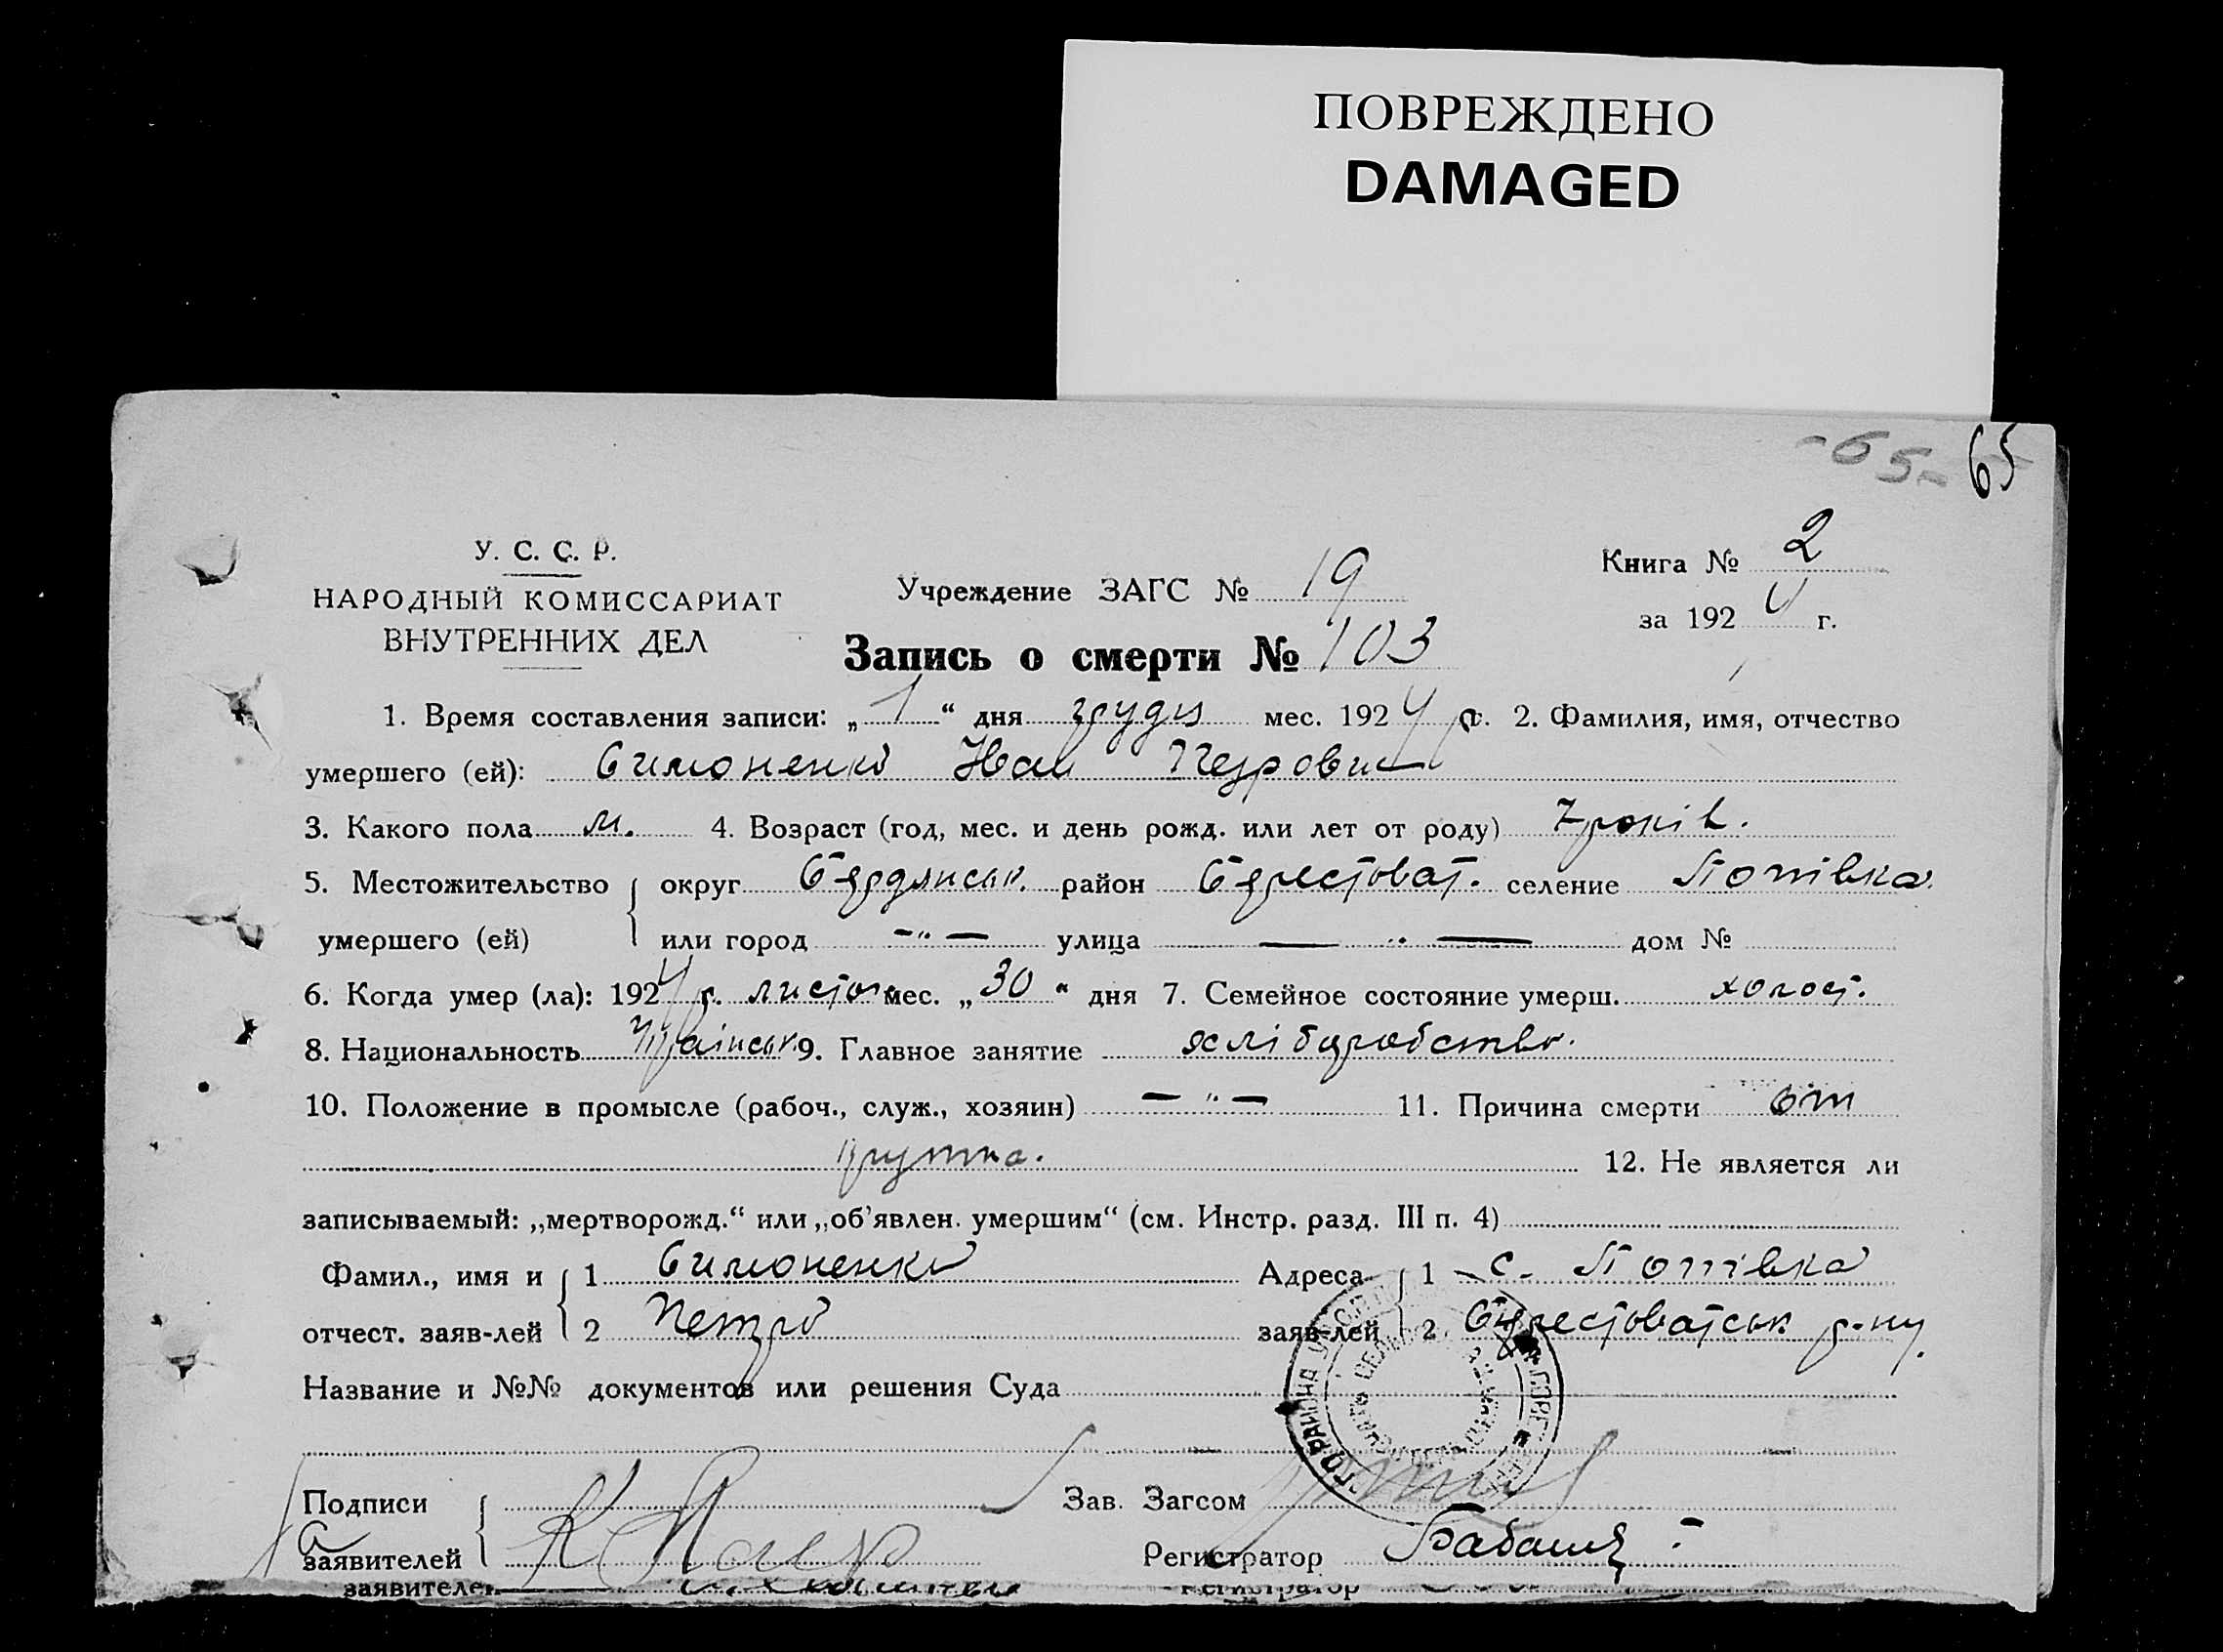 ПОВРЕЖДЕНО
DAMAGED
-65- 65
У. С. С. Р.
НАРОДНЫЙ КОМИССАРИАТ
ВНУТРЕННИХ ДЕЛ
Учреждение ЗАГС № 19
Книга № 2
за 1924 г.
Запись о смерти № 103
1. Время составления записи: „1“ дня грудня мес. 1924 г. 2. Фамилия, имя, отчество
умершего (ей): Симоненко Иван Петрович
3. Какого пола м. 4. Возраст (год, мес. и день рожд. или лет от роду) 7 років.
5. Местожительство округ Бердянськ. район Берестоват. селение Попівка
умершего (ей) или город —„— улица —„— дом №
6. Когда умер (ла): 1924 г. листоп мес. „30“ дня 7. Семейное состояние умерш. холост.
8. Национальность Українськ. 9. Главное занятие хліборобство.
10. Положение в промысле (рабоч., служ., хозяин) —„— 11. Причина смерти от
крупа. 12. Не является ли
записываемый: „мертворожд.“ или „об’явлен. умершим“ (см. Инстр. разд. III п. 4)
Фамил., имя и 1 Симоненко Адреса 1 с. Попівка
отчест. заяв-лей 2 Петро заяв-лей 2 Берестоватськ р-ну.
Название и №№ документов или решения Суда
Подписи Зав. Загсом
заявителей Регистратор
заявителей Регистратор